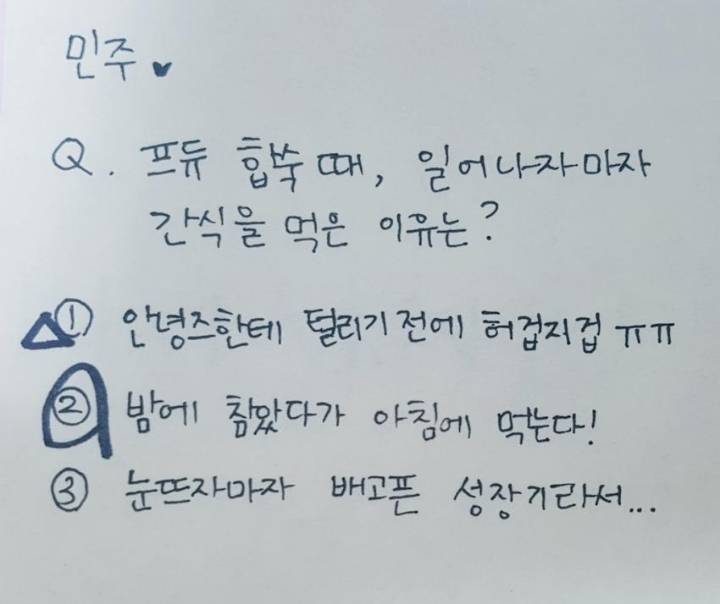 민주♥
Q. 프듀 합숙 때, 일어나자마자
간식을 먹은 이유는?
① 안녕즈한테 털리기 전에 허겁지겁 ㅠㅠ
② 밤에 참았다가 아침에 먹는다!
③ 눈뜨자마자 배고픈 성장기라서...